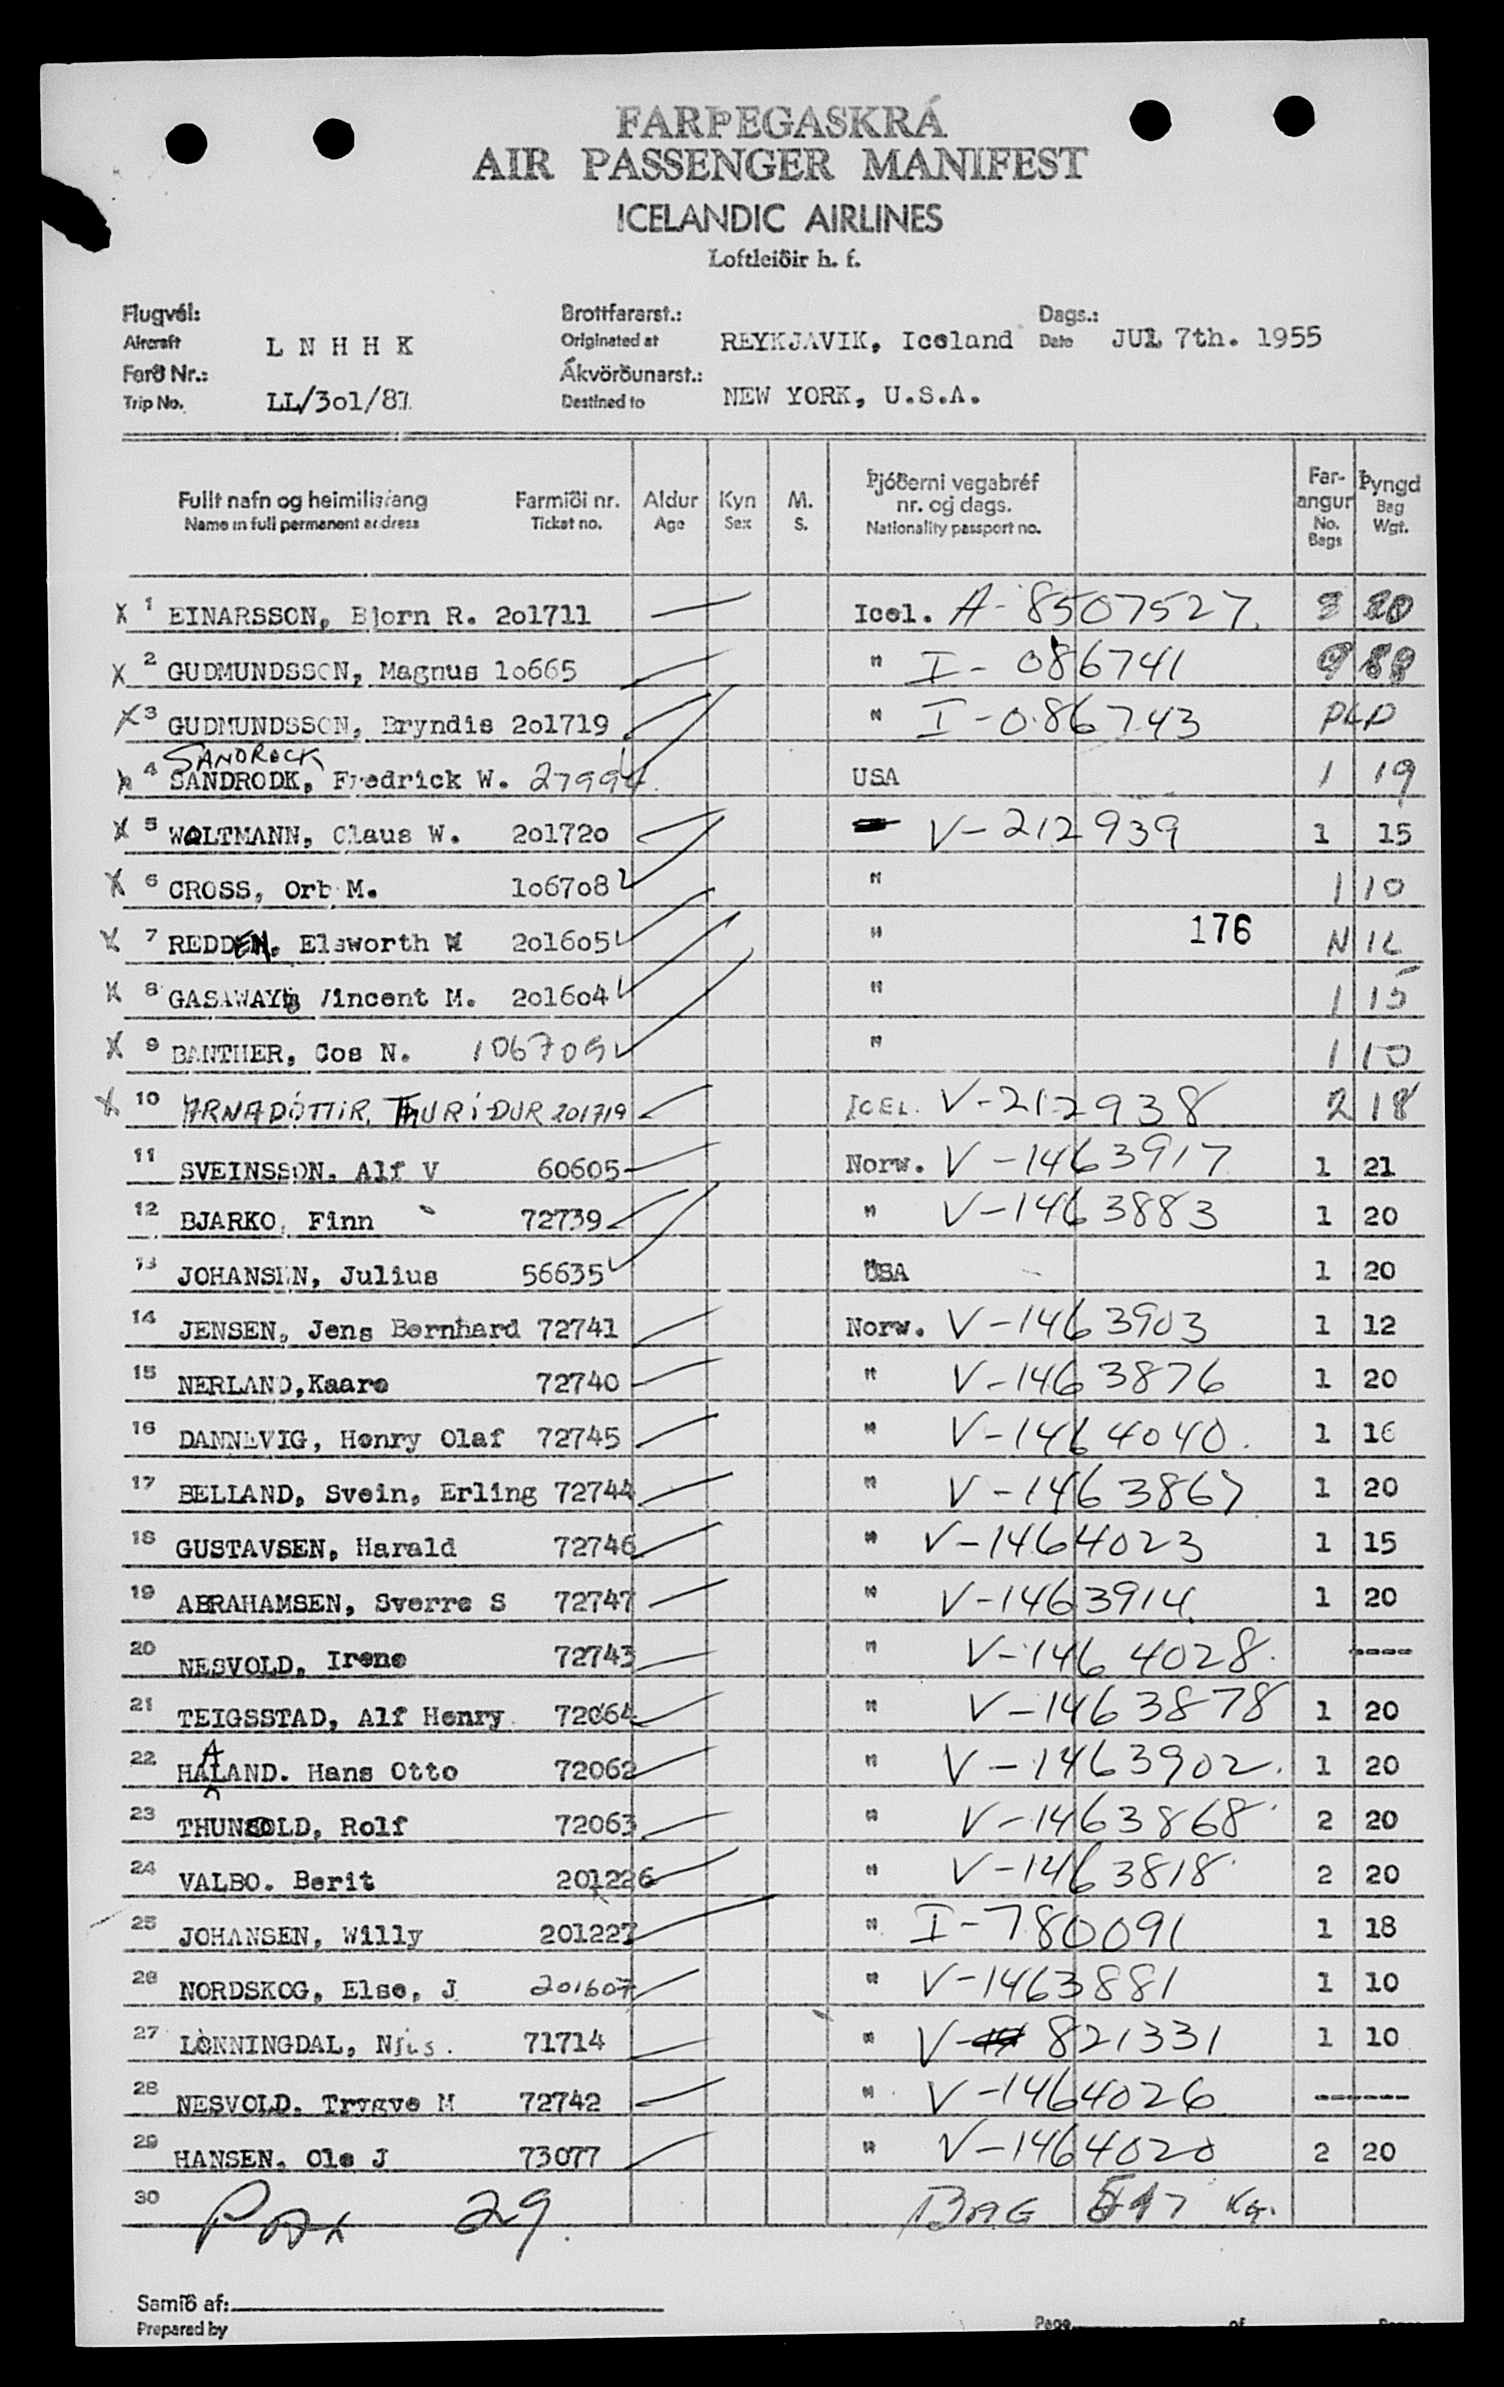 FARÞEGASKRÁ
AIR PASSENGER MANIFEST
ICELANDIC AIRLINES
Loftleiðir h. f.
Flugvél: Brottfararst.: Dags.:
Aircraft L N H H K Originated at REYKJAVIK, Iceland Date JUL 7th. 1955
Ferð Nr.: Ákvörðunarst.:
Trip No. LL/301/87 Destined to NEW YORK, U.S.A.
Fullt nafn og heimilisfang Farmiði nr. Aldur Kyn M. Þjóðerni vegabréf nr. og dags. Far-angur Þyngd
Name in full permanent address Ticket no. Age Sex S. Nationality passport no. No. Bags Bag Wgt.
X 1 EINARSSON, Bjorn R. 201711 Icel. A-8507527 3 20
X 2 GUDMUNDSSON, Magnus 10665 " I-086741
X 3 GUDMUNDSSON, Bryndis 201719 " I-086743
SANDROCK
4 SANDRODK, Fredrick W. 27994 USA 1 19
X 5 WOLTMANN, Claus W. 201720 V-212939 1 15
X 6 CROSS, Orb M. 106708 " 1 10
X 7 REDDEN, Elsworth W 201605 " 176 NIL
X 8 GASAWAY, Vincent M. 201604 " 1 15
X 9 BANTHER, Cos N. 106709 " 1 10
X 10 ARNADÓTTIR, THURÍDUR 201719 ICEL. V-212938 2 18
11 SVEINSSON, Alf V 60605 Norw. V-1463917 1 21
12 BJARKO, Finn 72739 " V-1463883 1 20
13 JOHANSEN, Julius 56635 USA 1 20
14 JENSEN, Jens Bernhard 72741 Norw. V-1463903 1 12
15 NERLAND, Kaare 72740 " V-1463876 1 20
16 DANNEVIG, Henry Olaf 72745 " V-1464040. 1 16
17 BELLAND, Svein, Erling 72744 " V-1463867 1 20
18 GUSTAVSEN, Harald 72746 " V-1464023 1 15
19 ABRAHAMSEN, Sverre S 72747 " V-1463914 1 20
20 NESVOLD, Irene 72743 " V-1464028. ----
21 TEIGSSTAD, Alf Henry 72064 " V-1463878 1 20
A
22 HALAND. Hans Otto 72062 " V-1463902. 1 20
23 THUNBOLD, Rolf 72063 " V-1463868 2 20
24 VALBO. Berit 201226 " V-1463818 2 20
25 JOHANSEN, Willy 201227 " I-780091 1 18
26 NORDSKOG, Else, J 201607 " V-1463881 1 10
27 LØNNINGDAL, Njus. 71714 " V- 821331 1 10
28 NESVOLD. Trygve M 72742 " V-1464026 ------
29 HANSEN. Ole J 73077 " V-1464020 2 20
30 Pax 29. BAG 517 Kg.
Samið af:
Prepared by Page of